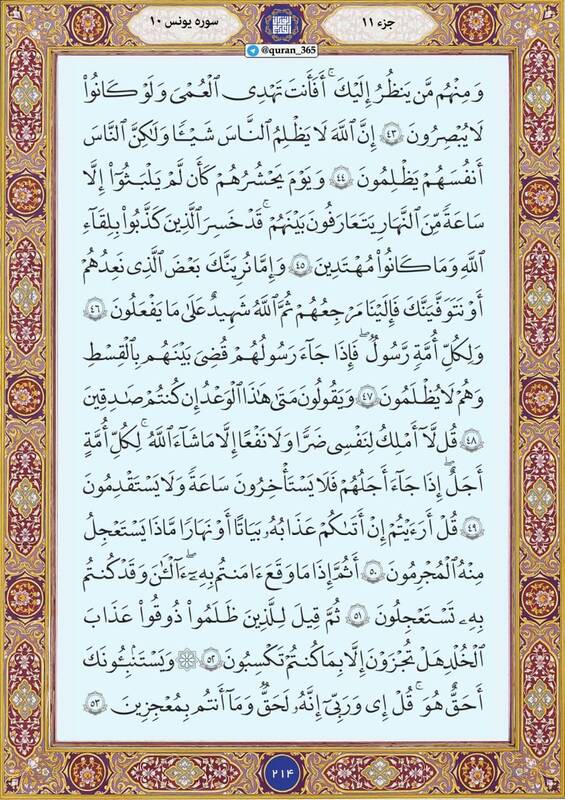 جزء ۱۱
سوره یونس ۱۰
@quran_365
وَمِنْهُم مَّن يَنظُرُ إِلَيْكَ ۚ أَفَأَنتَ تَهْدِى ٱلْعُمْىَ وَلَوْ كَانُوا۟
لَا يُبْصِرُونَ ۝٤٣ إِنَّ ٱللَّهَ لَا يَظْلِمُ ٱلنَّاسَ شَيْـًٔا وَلَـٰكِنَّ ٱلنَّاسَ
أَنفُسَهُمْ يَظْلِمُونَ ۝٤٤ وَيَوْمَ يَحْشُرُهُمْ كَأَن لَّمْ يَلْبَثُوٓا۟ إِلَّا
سَاعَةً مِّنَ ٱلنَّهَارِ يَتَعَارَفُونَ بَيْنَهُمْ ۚ قَدْ خَسِرَ ٱلَّذِينَ كَذَّبُوا۟ بِلِقَآءِ
ٱللَّهِ وَمَا كَانُوا۟ مُهْتَدِينَ ۝٤٥ وَإِمَّا نُرِيَنَّكَ بَعْضَ ٱلَّذِى نَعِدُهُمْ
أَوْ نَتَوَفَّيَنَّكَ فَإِلَيْنَا مَرْجِعُهُمْ ثُمَّ ٱللَّهُ شَهِيدٌ عَلَىٰ مَا يَفْعَلُونَ ۝٤٦
وَلِكُلِّ أُمَّةٍ رَّسُولٌ ۖ فَإِذَا جَآءَ رَسُولُهُمْ قُضِىَ بَيْنَهُم بِٱلْقِسْطِ
وَهُمْ لَا يُظْلَمُونَ ۝٤٧ وَيَقُولُونَ مَتَىٰ هَـٰذَا ٱلْوَعْدُ إِن كُنتُمْ صَـٰدِقِينَ
۝٤٨ قُل لَّآ أَمْلِكُ لِنَفْسِى ضَرًّا وَلَا نَفْعًا إِلَّا مَا شَآءَ ٱللَّهُ ۗ لِكُلِّ أُمَّةٍ
أَجَلٌ ۚ إِذَا جَآءَ أَجَلُهُمْ فَلَا يَسْتَـْٔخِرُونَ سَاعَةً وَلَا يَسْتَقْدِمُونَ
۝٤٩ قُلْ أَرَءَيْتُمْ إِنْ أَتَىٰكُمْ عَذَابُهُۥ بَيَـٰتًا أَوْ نَهَارًا مَّاذَا يَسْتَعْجِلُ
مِنْهُ ٱلْمُجْرِمُونَ ۝٥٠ أَثُمَّ إِذَا مَا وَقَعَ ءَامَنتُم بِهِۦٓ ۚ ءَآلْـَٔـٰنَ وَقَدْ كُنتُم
بِهِۦ تَسْتَعْجِلُونَ ۝٥١ ثُمَّ قِيلَ لِلَّذِينَ ظَلَمُوا۟ ذُوقُوا۟ عَذَابَ
ٱلْخُلْدِ هَلْ تُجْزَوْنَ إِلَّا بِمَا كُنتُمْ تَكْسِبُونَ ۝٥٢ ۞ وَيَسْتَنۢبِـُٔونَكَ
أَحَقٌّ هُوَ ۖ قُلْ إِى وَرَبِّىٓ إِنَّهُۥ لَحَقٌّ وَمَآ أَنتُم بِمُعْجِزِينَ ۝٥٣
۲۱۴